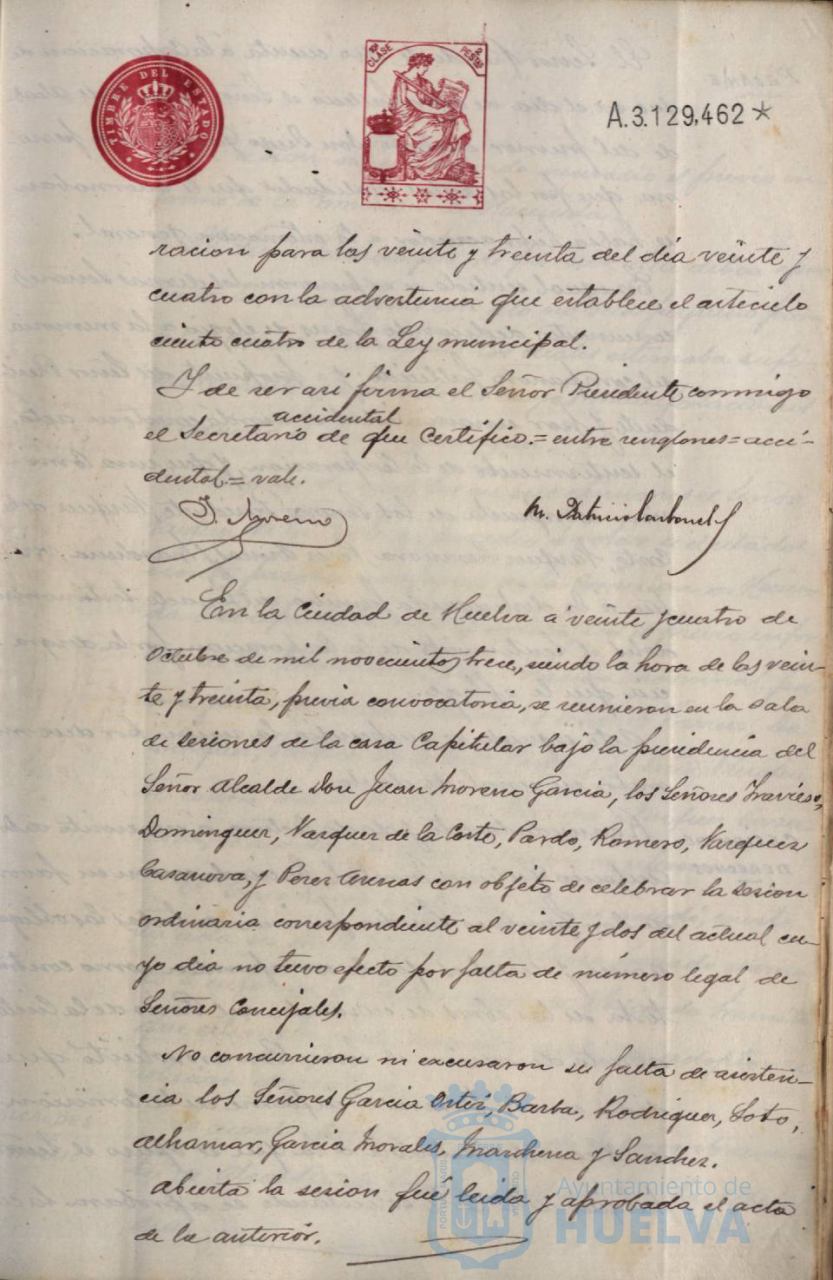 TIMBRE DEL ESTADO
10ª CLASE 2 PESTAS
A.3.129,462*
racion para las veinte y treinta del dia veinte y
cuatro con la advertencia que establece el articulo
ciento cuatro de la Ley municipal.
Y de ser asi firma el Señor Presidente conmigo
accidental
el Secretario de que Certifico.= entre renglones= acci-
dental.= vale.
J. Moreno
M. Patricio
En la Ciudad de Huelva á veinte y cuatro de
Octubre de mil novecientos trece, siendo la hora de las vein-
te y treinta, previa convocatoria, se reunieron en la Sala
de sesiones de la casa Capitular bajo la presidencia del
Señor Alcalde Don Juan Moreno Garcia, los Señores Travieso,
Dominguez, Vazquez de la Corte, Pardo, Romero, Vazquez
Casanova, y Perez Arenas con objeto de celebrar la sesion
ordinaria correspondiente al veinte y dos del actual cu-
yo dia no tuvo efecto por falta de número legal de
Señores Concejales.
No concurrieron ni excusaron su falta de asisten-
cia los Señores Garcia Ortiz, Barba, Rodriguez, Soto,
Alhamar, Garcia Morales, Marchena y Sanchez.
Abierta la sesion fué leida y aprobada el acta
de la anterior.
Ayuntamiento de
HUELVA